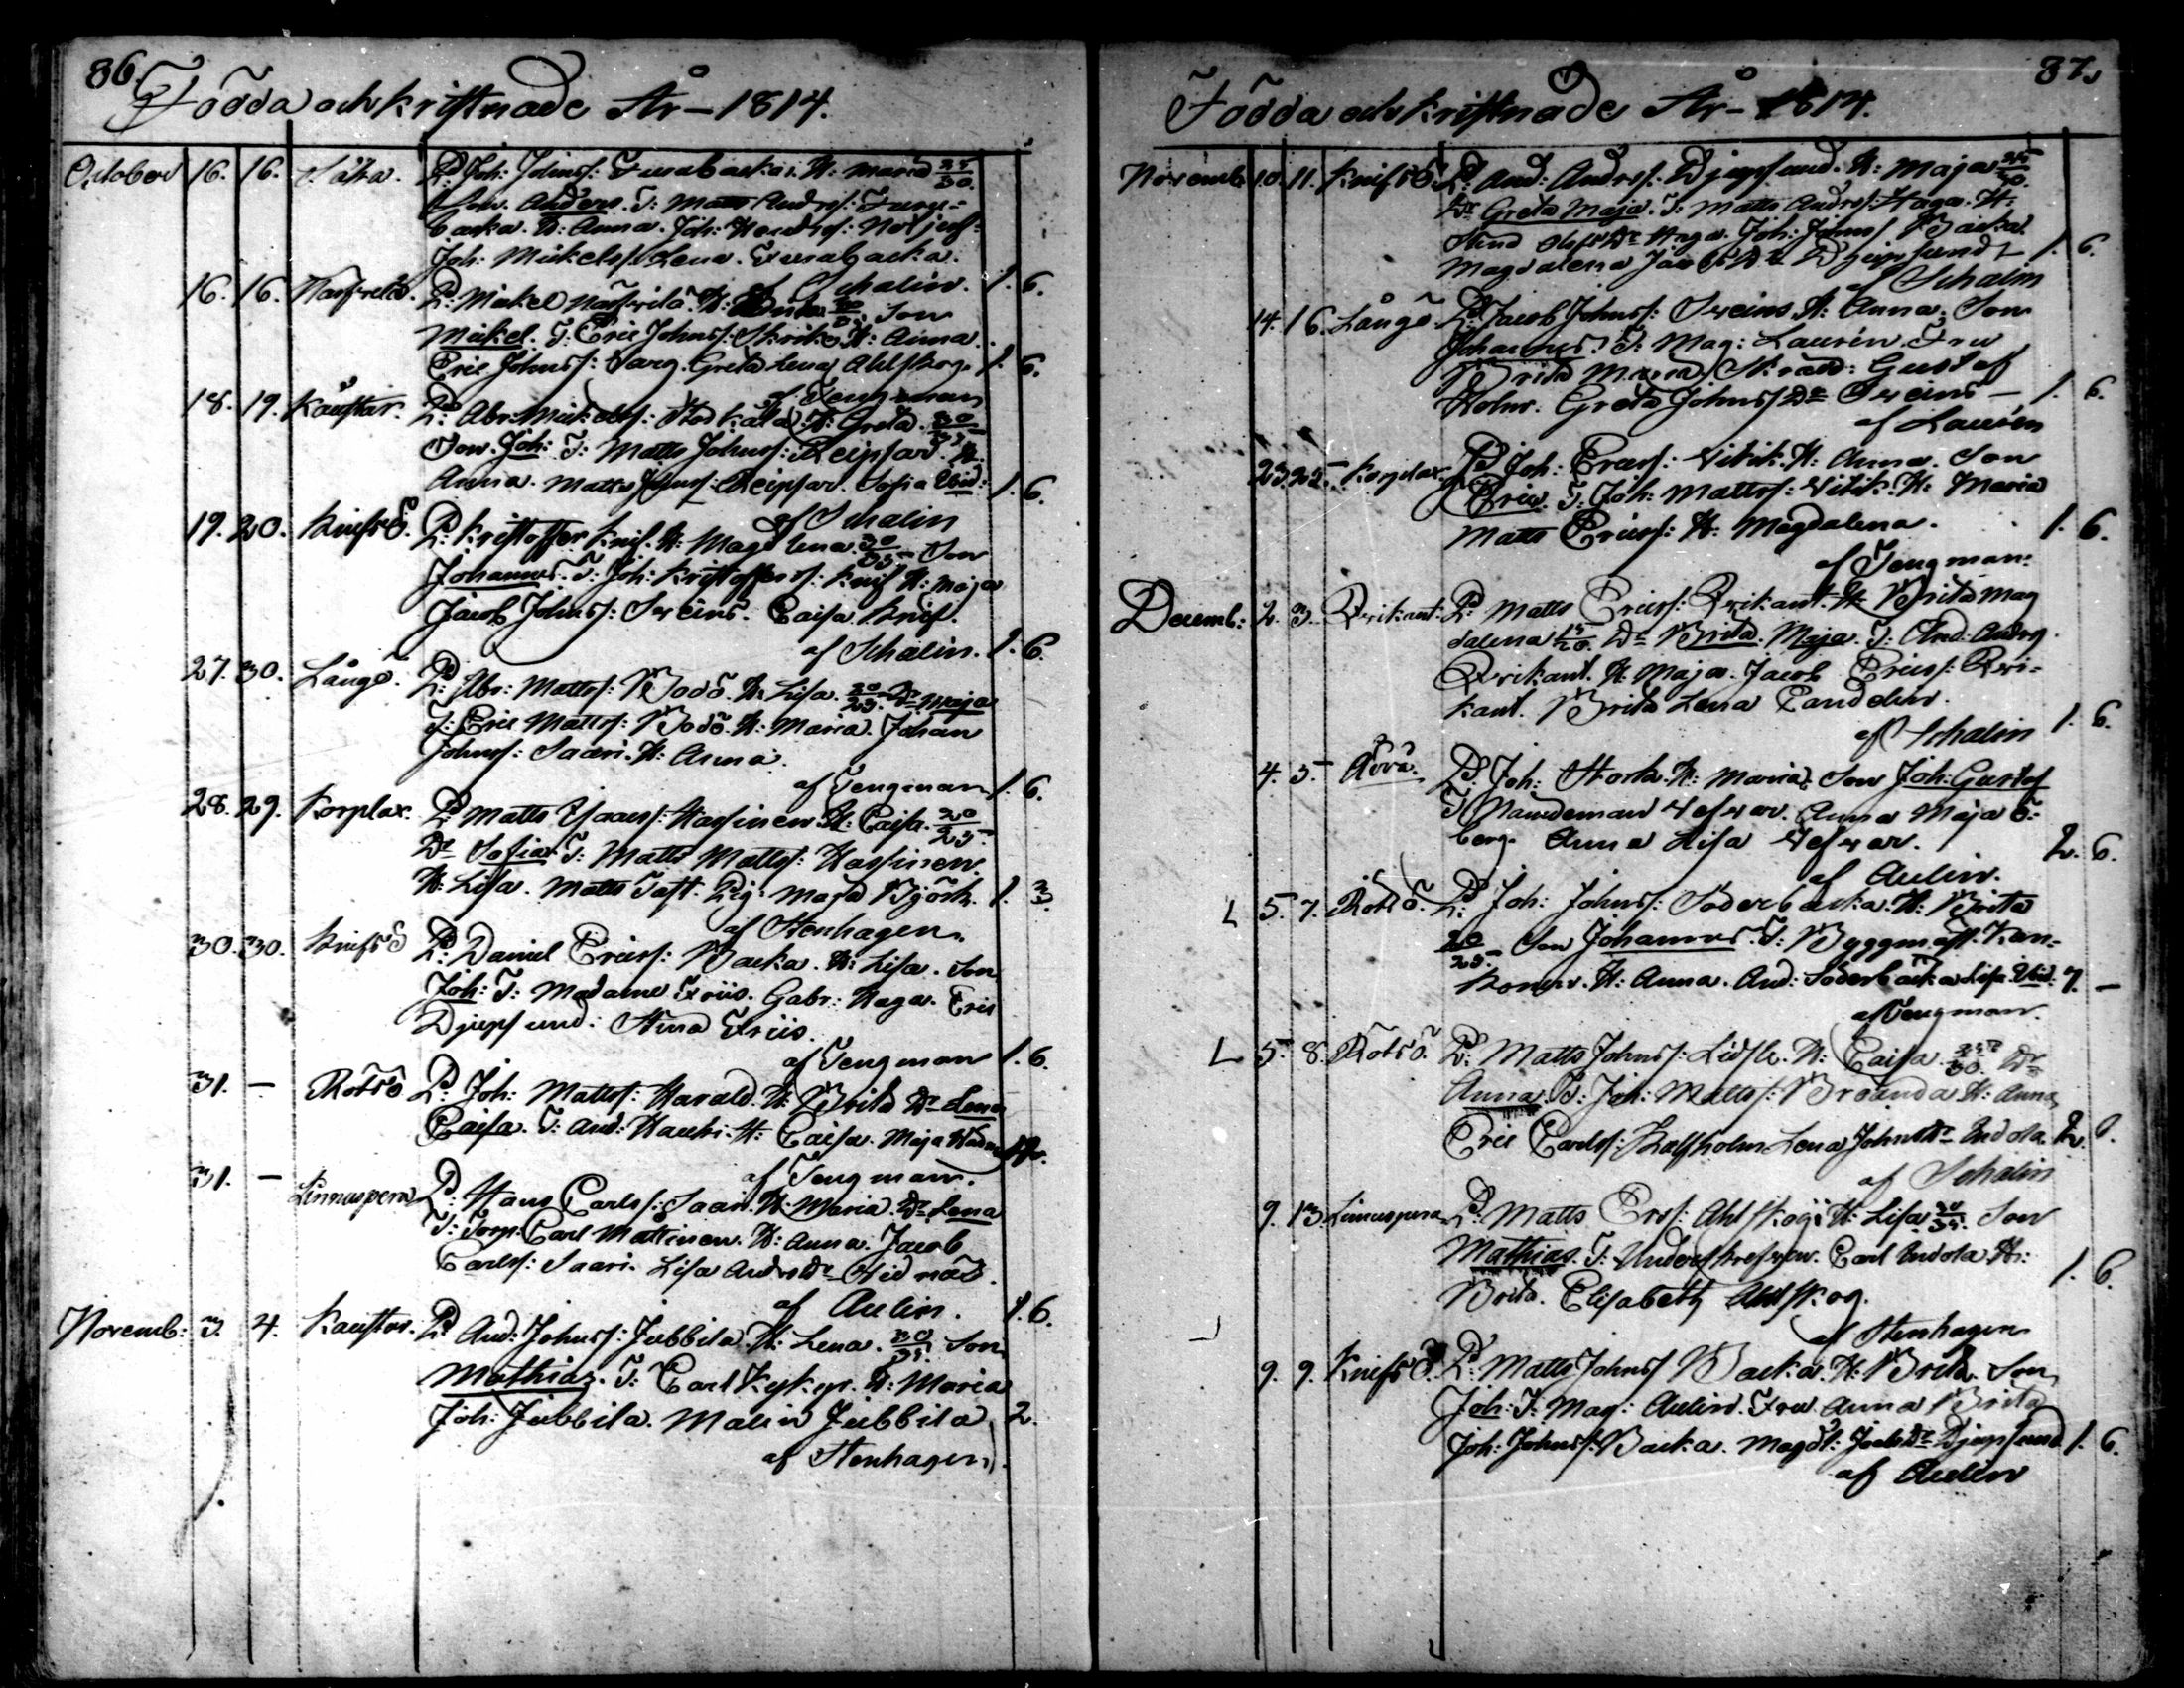 86.
Födda och kristnade År - 1814.
October 16. 16. Såka. P: Joh: Johnss: Furubacka. H: Maria 25/30.
Son Anders. T: Matts Andrss: Furu-
backa. H: Anna. Joh:
Joh: Mickelss: Lena Furubacka.
af Schalin. 1. 6.
16. 16. P: Mickel H: Son
Mickel. T: Eric Johnss: Skrike H: Anna.
Eric Johnss: Varg. Greta Lena Ahlskog. 1. 6.
af Tengman
18. 19. Kaustar. P: Abr: Mickelss: H: Greta. 30/35
Son Joh: T: Matts Johnss: Reipsar. H:
Anna. Matts Johnss: Reipsar. Sofia Ibid: 1. 6.
af Schalin
19. 20. Knifsö. P: Kristoffer Knif. H: Magdlena 30/35 Son
Johannes. T: Joh: Kristofferss: Knif H: Maja
Jacob Johnss: Sveins. Caisa Knif.
af Schalin. 1. 6.
27. 30. Långö. P: Abr: Mattss: Bodö. H: Lisa. 20/25. Dr Maja
T: Eric Mattss: Bodö. H: Maria. Johan
Johnss: Saari. H: Anna.
af Tengman 1. 6.
28. 29. Korplax. P: Matts Isacss: Hassinen H: Caisa. 20/25
Dr Sofia. T: Matts Mattss: Hassinen.
H: Lisa. Matts Taft. Pig: Magd Björk. 1. 3.
af Stenhagen.
30. 30. Knifsö P: Daniel Ericss: Backa. H: Lisa. Son
Joh: T: Madame Friis. Gabr: Haga. Eric
Djupsund: Stina Friis.
af Tengman 1. 6.
31. — Rotsö P: Joh: Mattss: Harald. H: Brita Dr Lena
Caisa. T: And: H: Caisa. Maja
af Tengman.
31. — Linnuspera P: Hans Carlss: Saari. H: Maria. Dr Lena
T: Torp: Carl Mattinen. H: Anna. Jacob
Carlss: Saari. Lisa Andrsdr
af Aulin. 1. 6.
Novemb: 3. 4. Kaustar. P: And: Johnss: Jubbila. H: Lena. 30/35. Son
Mathias. T: Carl Kykyr. H: Maria
Joh: Jubbila. Malin Jubbila 2.
af Stenhagen.
87.
Födda och kristnade År - 1814.
Novemb: 10. 11. Knifsö P: And: Andrss: Djupsund. H: Maja 25/30.
Dr Greta Maja. T: Matts Andrss: Haga. H:
Stina Olofsdr Haga. Joh: Johnss Backa.
Magdalena Djupsund 1. 6.
af Schalin
14. 16. Långö P: Jacob Johnss: Sveins H: Anna. Son
Johannes. T: Mag: Laurén. Fru
Brita Maria. Skrädd: Gustaf
Holm. Greta Johnssdr Sveins — 1. 6.
af Laurén
23. 25. Korplax P: Joh: Ericss: Vitik. H: Anna. Son
Eric. T: Joh: Mattss: Vitik. H: Maria
Matts Ericss: H: Magdalena. 1. 6.
af Tengman.
Decemb: 2. 3. Brikant: P: Matts Ericss: Brikant. H: Brita Mag
dalena 15/20. Dr Brita Maja. T: And: Andrss.
Brikant. H: Maja. Jacob Ericss: Bri-
kant. Brita Lena Candelin.
af Schalin 1. 6.
4. 5. P: Joh: Stork. H: Maria. Son Joh: Gustaf
T: Nämdeman Vesvar. Anna Maja Ö-
berg. Anna Lisa Vesvar. 2. 6.
af Aulin.
L 5. 7. Rotsö. P: Joh: Johnss: Söderbacka. H: Brita
20/25. Son Johannes. T: Byggmäst.
H: Anna. And: Söderbacka Lisa Ibid: —
af Tengman.
L 5. 8. Rotsö. P: Matts Johnss: H: Caisa. 25/30. Dr
Anna. T: Joh: Mattss: Brända H: Anna
Eric Carlss: Kalfholm Lena Johnsdr Indola
af Schalin
9. 13. Linnuspera P: Matts Ers: Ahlskog. H: Lisa 30/35. Son
Mathias. T: Carl Indola H:
Brita. Elisabeth Ahlskog. 1. 6.
af Stenhagen
9. 9. Knifsö. P: Matts Johnss Backa. H: Brita. Son
Joh: T: Mag: Aulin. Fru Anna Brita
Joh: Johnss: Backa. Magdl: Djupsund 1. 6.
af Aulin